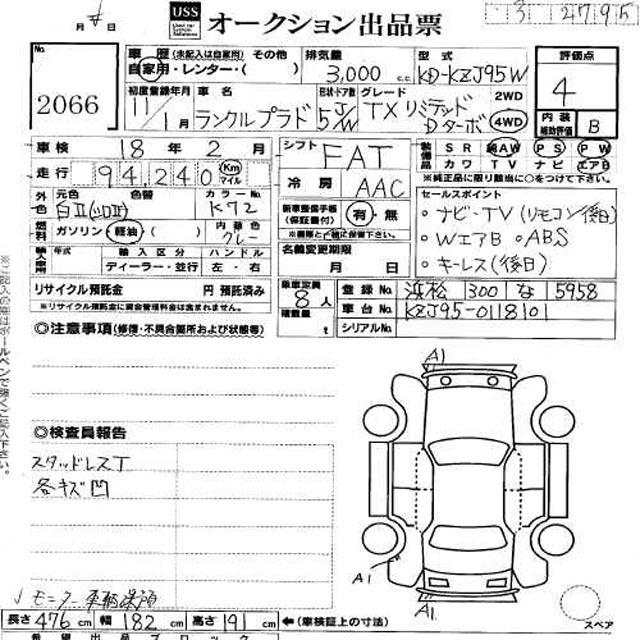 3 2795
月
USS オークション出品票
No.
2066
車歴(未記入は自家用) その他
自家用・レンター・( )
排気量
3,000 c.c.
型式
KD-KZJ95W
評価点
4
内装
補助評価 B
初度登録年月
11/1月
車名
ランクルプラド
形状・ドア数
5 J/W
グレード
TXリミテッド
Dターボ
2WD
4WD
車検 18年 2月
走行 94240 Km マイル
シフト FAT
冷房 AAC
装備品 SR 純AW PS PW
カワ TV ナビ エアB
※純正品に限り該当に○をつけて下さい。
外色 元色 色替 カラーNo.
白II K72
燃料 ガソリン・軽油・( ) 内装色
グレー
新車整備手帳
(保証書付) 有・無
セールスポイント
○ナビ・TV(リモコン後日)
○WエアB ○ABS
○キーレス(後日)
輸入車用 年式 輸入区分 ハンドル
ディーラー・並行 左・右
名義変更期限
月 日
リサイクル預託金 円 預託済み
※リサイクル預託金に資金管理料金は含まれません。
乗車定員
8人
積載量
t
登録No. 浜松 300 な 5958
車台No. KZJ95-0118101
シリアルNo.
◎注意事項(修復・不具合箇所および状態等)
A1
◎検査員報告
スタッドレスT
各キズ凹
A1
A1
モニター車両
長さ 476cm 幅 182cm 高さ 191cm ←(車検証上の寸法)
スペア
希望出品ブロック